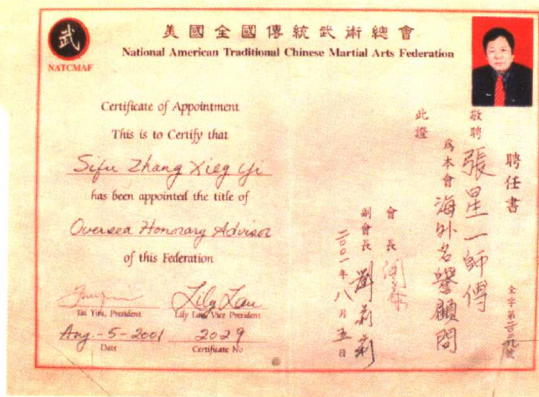 武
NATCMAF
美國全國傳統武術總會
National American Traditional Chinese Martial Arts Federation
Certificate of Appointment
This is to Certify that
Sifu Zhang Xieg Yi
has been appointed the title of
Oversea Honorary Advisor
of this Federation
Lily Lau
President
Lily Lau, Vice President
Aug.-5-2001
2029
Date
Certificate No
聘任書
敬聘
張星一師傅
為本會
海外名譽顧問
此證
會長
副會長 劉莉莉
二〇〇一年八月五日